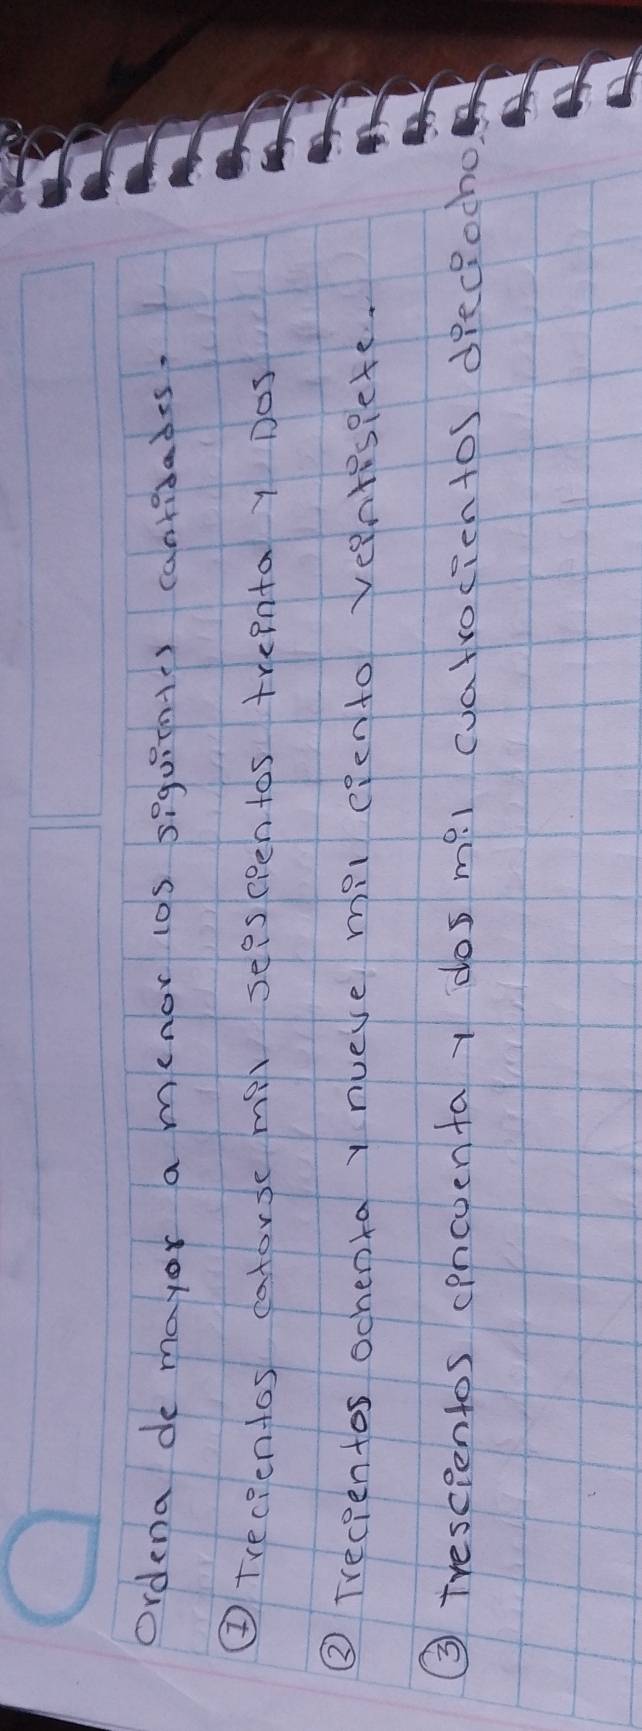 Ordena de mayor a menor los siguientes cantidades.
① Trecientos catorse mil seiscientos treinta y Dos
② Trecientos ochenta y nueve mil ciento veintisiete.
③ Trescientos cincuenta y dos mil cuatrocientos dieciocho.